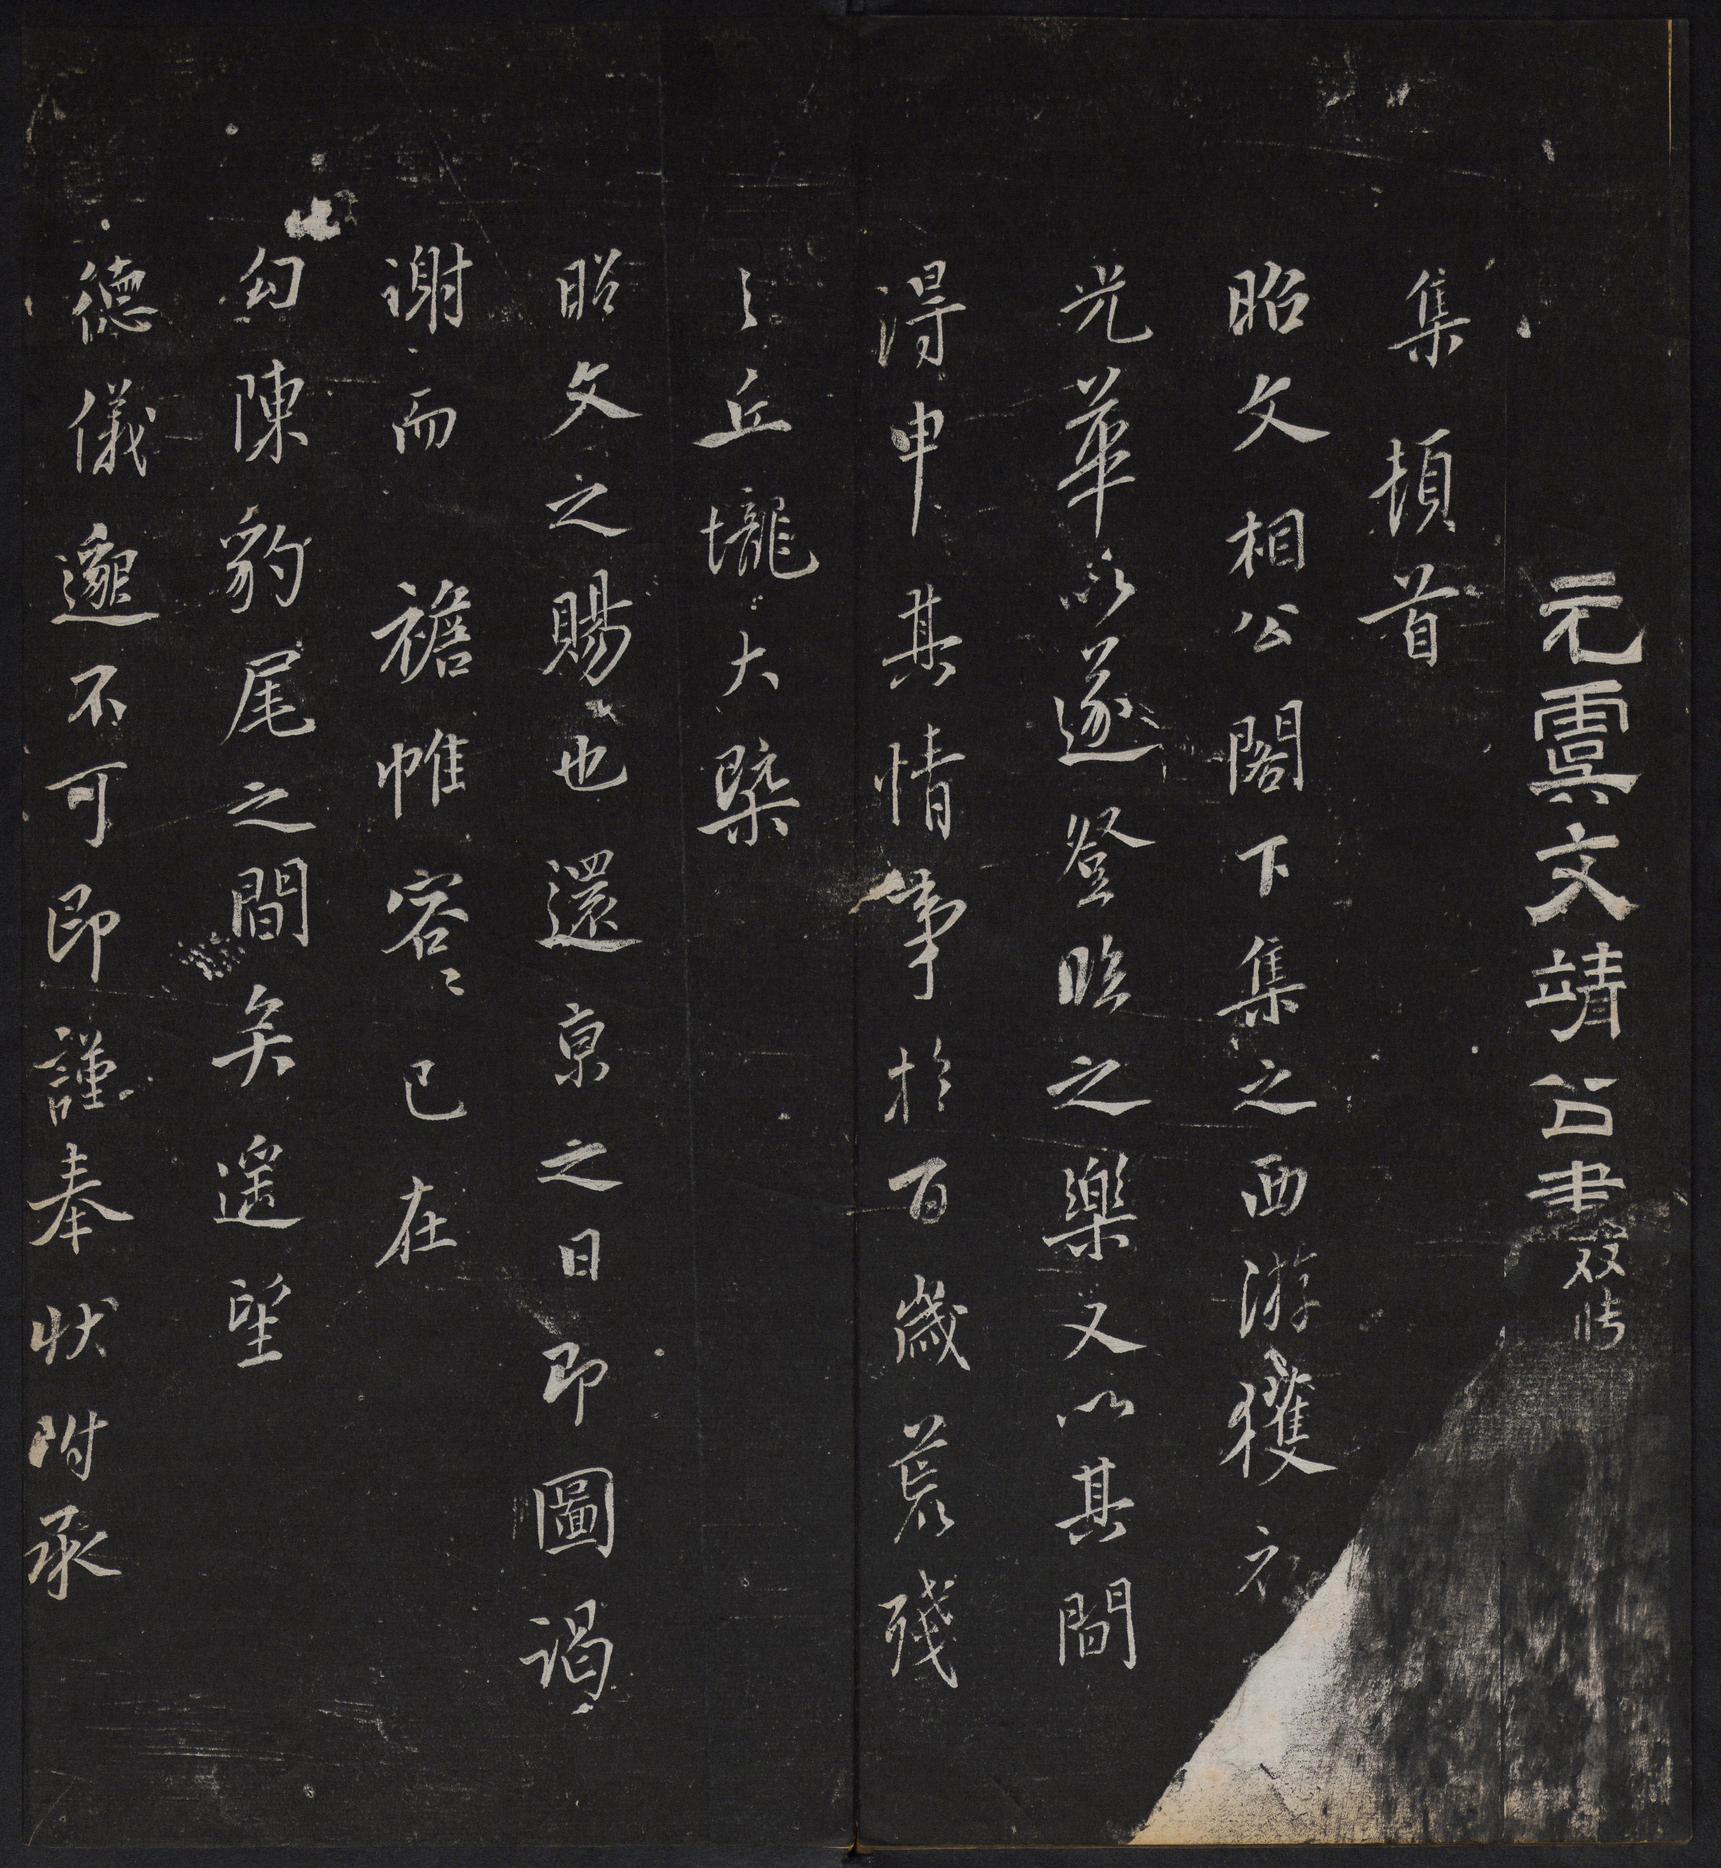 元虞文靖公書
集頓首
昭文相公閣下集之西游獲衣
光華以遂登臨之樂又以其間
得申其情事於百歲荒殘
之丘壠大槩
昭文之賜也還京之日即圖謁
謝而襜帷容〻已在
勾陳豹尾之間矣遥望
德儀邈不可即謹奉狀附承